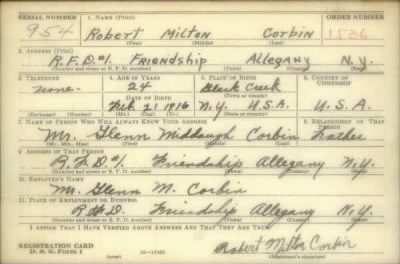 SERIAL NUMBER 1. NAME (Print) ORDER NUMBER
954 Robert Milton Corbin 1536
(First) (Middle) (Last)
2. ADDRESS (Print)
R.F.D.#1. Friendship Allegany N.Y.
(Number and street or R. F. D. number) (Town) (County) (State)
3. TELEPHONE 4. AGE IN YEARS 5. PLACE OF BIRTH 6. COUNTRY OF CITIZENSHIP
none. 24 Black Creek
DATE OF BIRTH
Feb. 21 1916 N.Y. U.S.A. U.S.A.
7. NAME OF PERSON WHO WILL ALWAYS KNOW YOUR ADDRESS 8. RELATIONSHIP OF THAT PERSON
Mr. Glenn Middaugh Corbin Father
(Mr., Mrs., Miss) (First) (Middle) (Last)
9. ADDRESS OF THAT PERSON
R.F.D.#1. Friendship Allegany N.Y.
(Number and street or R. F. D. number) (Town) (County) (State)
10. EMPLOYER'S NAME
Mr. Glenn M. Corbin
11. PLACE OF EMPLOYMENT OR BUSINESS
R.F.D. Friendship Allegany N.Y.
(Number and street or R. F. D. number) (Town) (County) (State)
I AFFIRM THAT I HAVE VERIFIED ABOVE ANSWERS AND THAT THEY ARE TRUE.
REGISTRATION CARD
D. S. S. Form 1 (over) Robert Milton Corbin
(Registrant's signature)